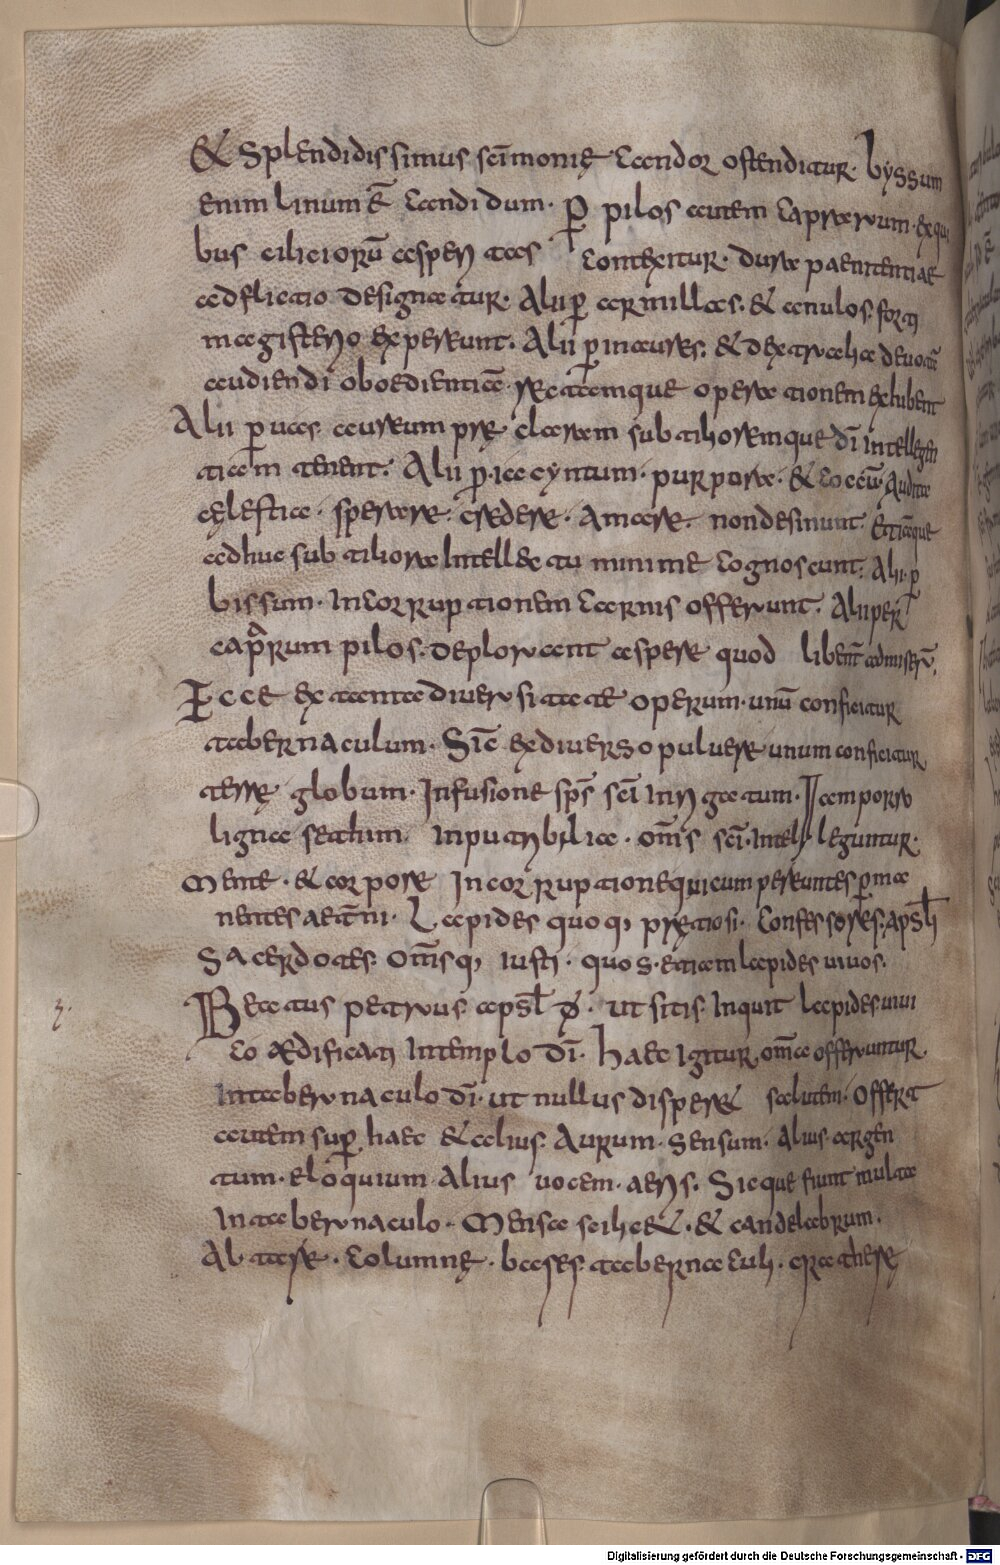 & splendidissimus scīmonię candor ostenditur. byssum
enim linum ē candidum. p̄ pilos autem caprarum. ex qui
bus ciliciorū asperitas contexitur. dura paenitentiae
adflictio designatur. Alii p̄ armillas. & anulos. forti
magisterio experiunt. Alii p̄ inaures. & dextralia deuotā
audiendi oboedientiā rectamque operationem exhibent
Alii p̄ uas aurum prę claram subtilioremque dī intellegen
tiam tenent. Alii p̄ iacyntum. purpora. & coccū. Audita
cęlestia. sperare. credere. Amare. non desinunt. Etiāque
adhuc subtiliora intellectu minime cognoscunt. Alii p̄
bissum. incorruptionem carnis offerunt. Alii per
caprarum pilos. deplorant aspere quod libent̄ admiserū.
Ecce ex tanta diuersitate operum. unū conficitur
tabernaculum. Sic ex diuerso puluere unum conficitur
terrę globum. Infusione sps̄ scī inrigatum. Item porro
ligna sethim inputribilia. om̄s scī. intelleguntur.
mente. & corpore incorruptione quicum pereuntes p̄ma
nentes aet̄ni. Lapides quoq; prętiosi. confessores. apsl̄i
Sacerdotes. Om̄sq; iusti. quos. etiam lapides uiuos.
Beatus petrus apsl̄ d̄. ut sitis inquit lapides uiui
co ædificati in templo dī. haec igitur om̄a offeruntur
in tabernaculo dī. ut nullus disperet salutem. Offert
autem sup̄ haec & alius. Aurum. Sensum. Alius argen
tum. eloquium Alius uocem. aeris. Sicque fiunt multa
in tabernaculo. Mensa scilic&. & candelabrum.
Altare. Columnę. bases. tabernaculi. cratere
Digitalisierung gefördert durch die Deutsche Forschungsgemeinschaft - DFG